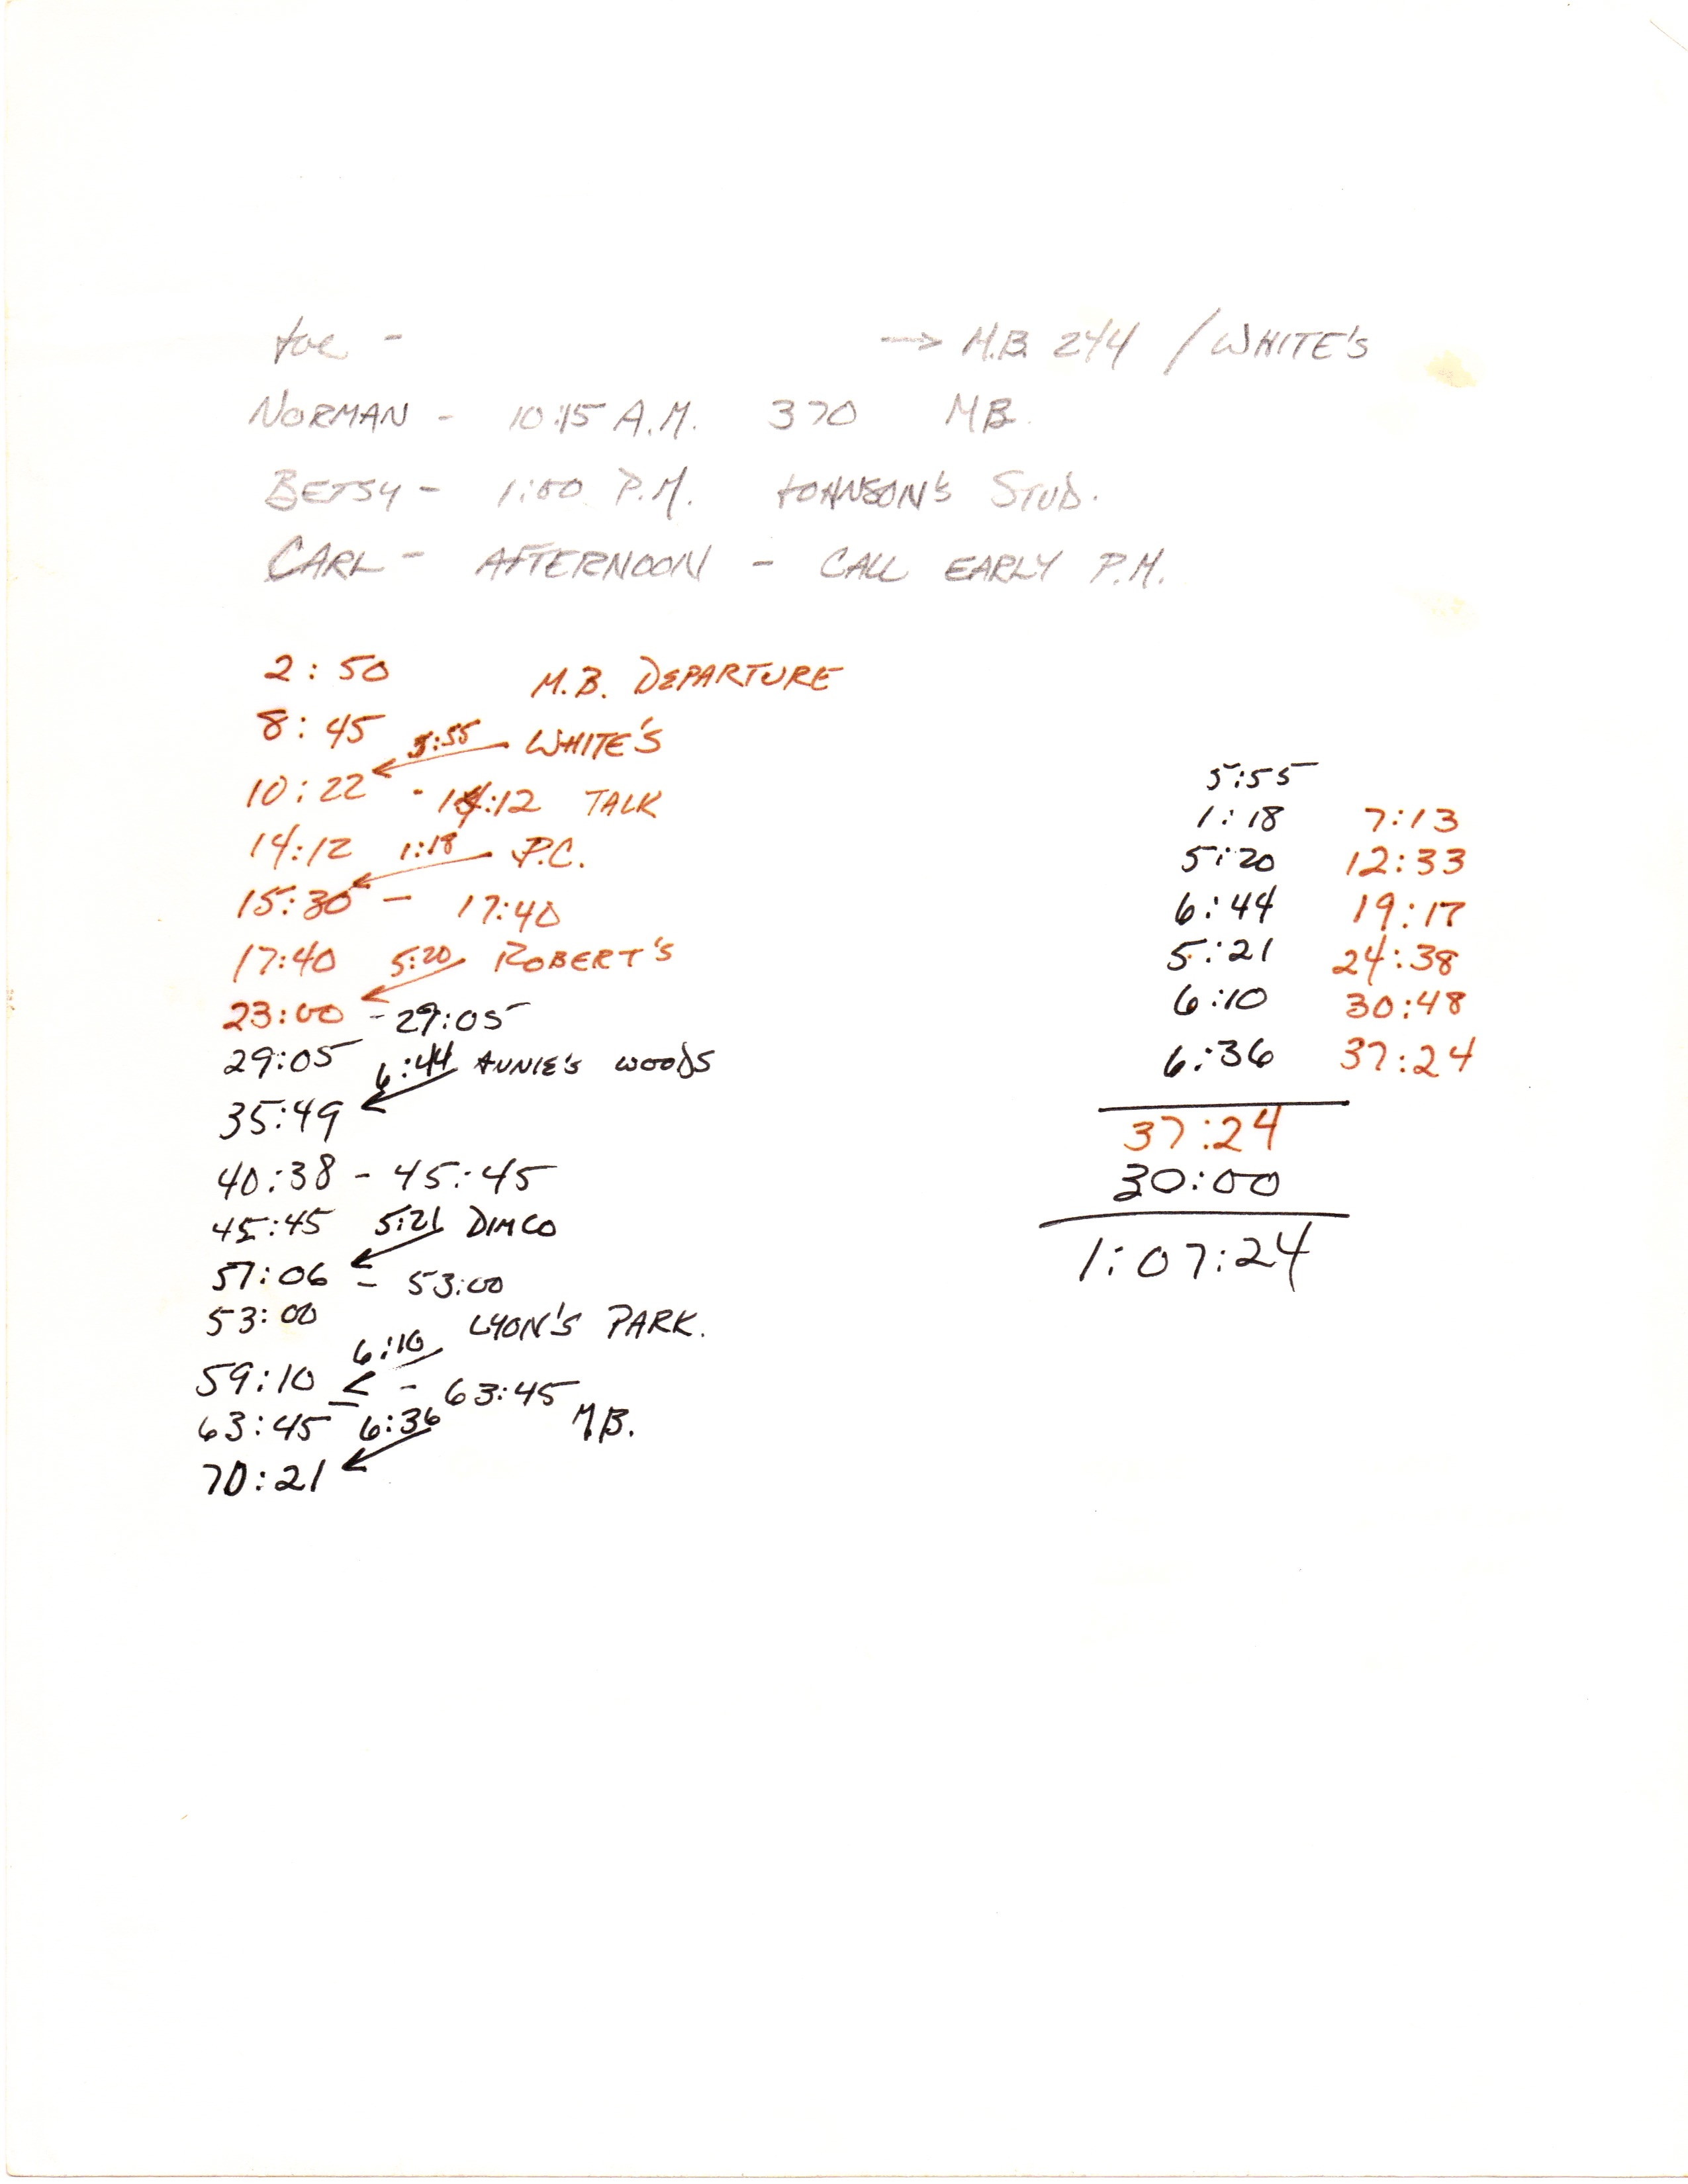 Joe - → M.B. 244 / WHITE'S
NORMAN - 10:15 A.M. 370 MB.
BETSY - 1:00 P.M. JOHNSON'S STUD.
CARL - AFTERNOON - CALL EARLY P.M.
2:50 M.B. DEPARTURE
8:45 5:55 WHITE'S
10:22 - 14:12 TALK
14:12 1:18 P.C.
15:30 - 17:40
17:40 5:20 ROBERT'S
23:00 - 29:05
29:05 6:44 ANNIE'S WOODS
35:49
40:38 - 45:45
45:45 5:21 DIMCO
51:06 - 53:00
53:00 6:10 LYON'S PARK.
59:10 - 63:45
63:45 6:36 M.B.
70:21
5:55
1:18 7:13
5:20 12:33
6:44 19:17
5:21 24:38
6:10 30:48
6:36 37:24
37:24
30:00
1:07:24